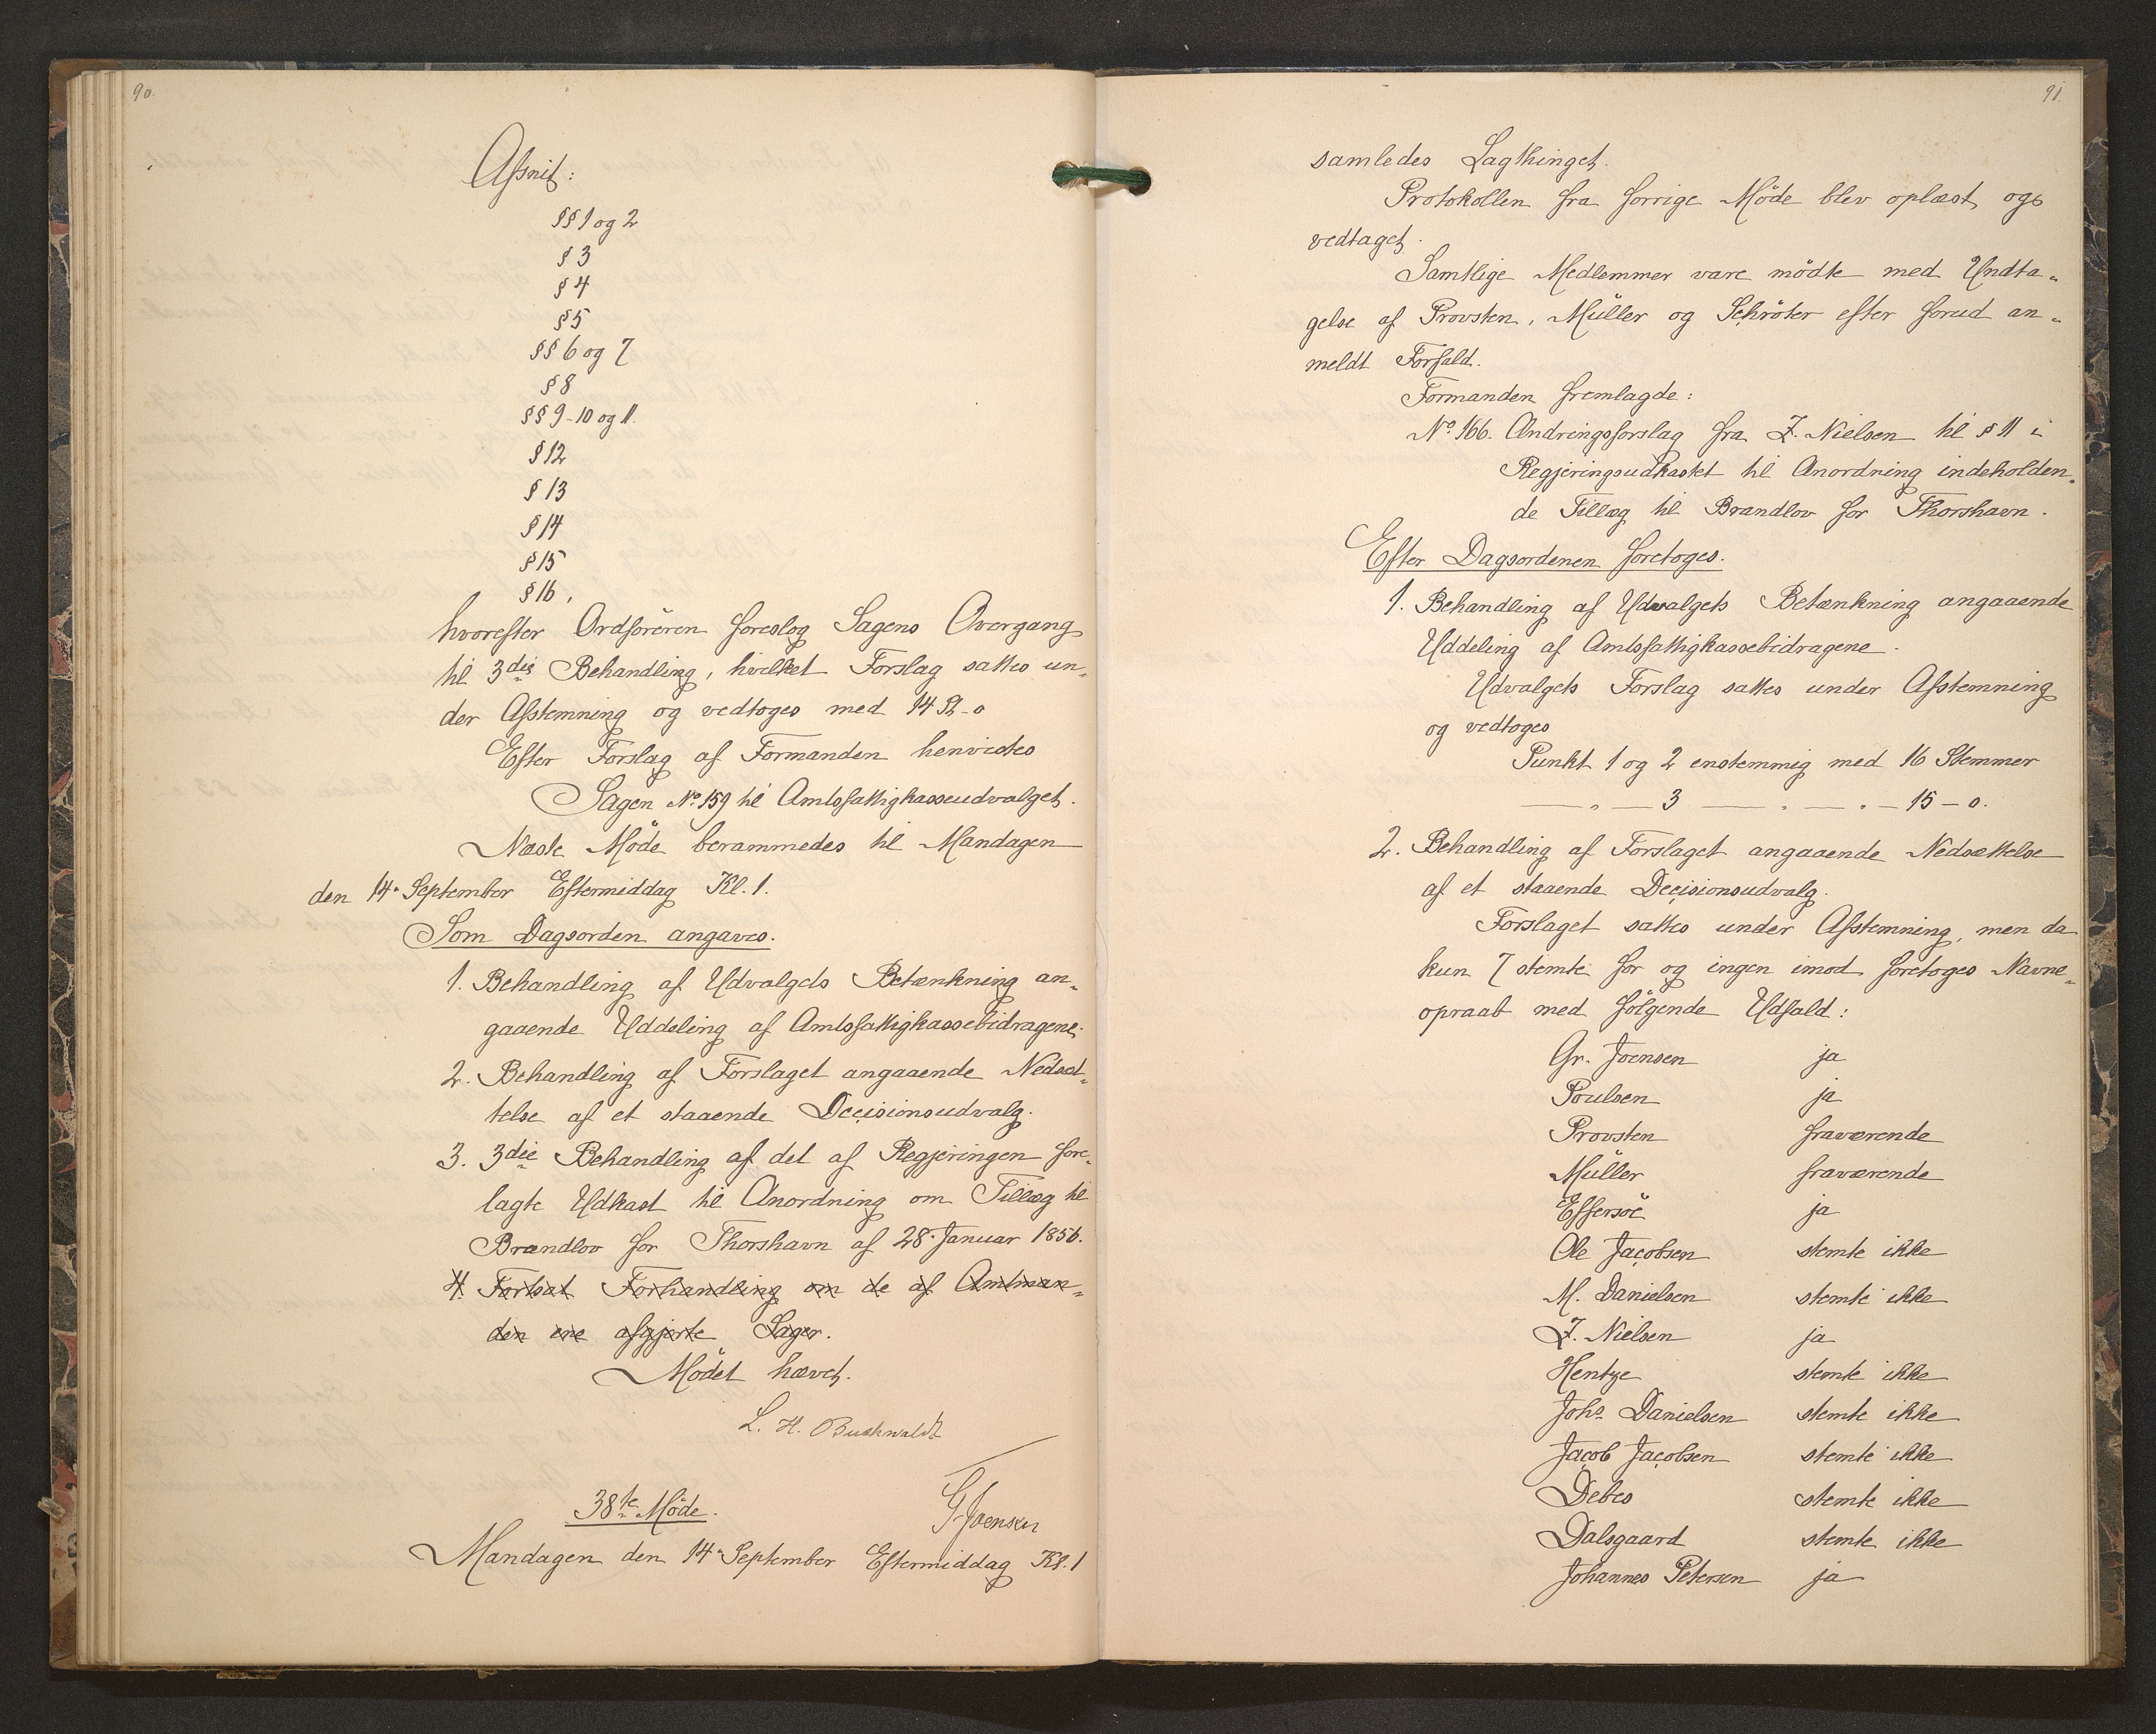 90.
Afsnit:
§§ 1 og 2
§ 3
§ 4
§ 5
§§ 6 og 7
§ 8
§§ 9-10 og 11.
§ 12
§ 13
§ 14
§ 15
§ 16,
hvorefter Ordföreren foreslog Sagens Overgang
til 3die Behandling, hvilket Forslag sattes un-
der Afstemning og vedtoges med 14 St-0
Efter Forslag af Formanden henvistes
Sagen No. 159 til Amtsfattigkasseudvalget.
Næste Möde berammedes til Mandagen
den 14. September Eftermiddag Kl. 1.
Som Dagsorden angaves.
1. Behandling af Udvalgets Betænkning an-
gaaende Uddeling af Amtsfattigkassebidragene.
2. Behandling af Forslaget angaaende Nedsæt-
telse af et staaende Decisionsudvalg.
3. 3die Behandling af det af Regjeringen fore-
lagte Udkast til Anordning om Tillæg til
Brandlov for Thorshavn af 28. Januar 1856.
4. Fortsat Forhandling om de af Amtman-
den ene afgjorte Sager.
Mödet hævet.
L. H. Buchwaldt
G Joensen
38te Möde.
Mandagen den 14. September Eftermiddag Kl. 1
91.
samledes Lagthinget.
Protokollen fra forrige Möde blev oplæst og
vedtaget.
Samtlige Medlemmer vare mödte med Undta-
gelse af Provsten, Müller og Schröter efter forud an-
meldt Forfald.
Formanden fremlagde:
No. 166. Ændringsforslag fra Z. Nielsen til § 11 i
Regjeringsudkastet til Anordning indeholden-
de Tillæg til Brandlov for Thorshavn.
Efter Dagsordenen foretoges.
1. Behandling af Udvalgets Betænkning angaaende
Uddeling af Amtsfattigkassebidragene.
Udvalgets Forslag sattes under Afstemning
og vedtoges
Punkt 1 og 2 enstemmig med 16 Stemmer
— " — 3 — " — " — 15 - 0.
2. Behandling af Forslaget angaaende Nedsættelse
af et staaende Decisionsudvalg.
Forslaget sattes under Afstemning, men da
kun 7 stemte for og ingen imod foretoges Navne-
opraab med fölgende Udfald:
Gr. Joensen ja
Poulsen ja
Provsten fraværende
Müller fraværende
Effersöe ja
Ole Jacobsen stemte ikke
M. Danielsen stemte ikke
Z. Nielsen ja
Hentze stemte ikke
Johs Danielsen stemte ikke
Jacob Jacobsen stemte ikke
Debes stemte ikke
Dalsgaard stemte ikke
Johannes Petersen ja